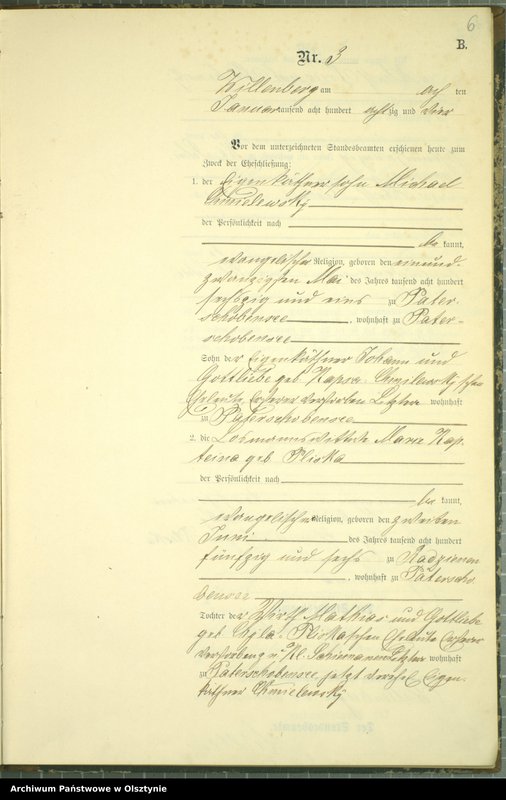 6
B.
Nr. 3
Willenberg am acht ten
Januar tausend acht hundert achtzig und vier
Vor dem unterzeichneten Standesbeamten erschienen heute zum
Zweck der Eheschließung:
1. der Eigenkäthnersohn Michael
Chmielewsky
der Persönlichkeit nach
be kannt,
evangelischer Religion, geboren den einund-
zwanzigsten Mai des Jahres tausend acht hundert
sechszig und eins zu Pater-
schobensee, wohnhaft zu Pater-
schobensee
Sohn der Eigenkäthner Johann und
Gottliebe geb. Chmilewsky'schen
Eheleute Ersterer verstorben Letztere wohnhaft
zu Paterschobensee
2. die Losmannswittwe Marie Kap-
teina geb. Pliska
der Persönlichkeit nach
be kannt,
evangelischer Religion, geboren den zweiten
Juni des Jahres tausend acht hundert
fünfzig und sechs zu Radzienen
, wohnhaft zu Paterscho
bensee
Tochter der Wirth Mathias und Gottliebe
geb. Pliskaschen Eheleute Ersterer
verstorben Letztere wohnhaft
zu Paterschobensee jetzt Eigen-
käthner Chmielewsky
Archiwum Państwowe w Olsztynie